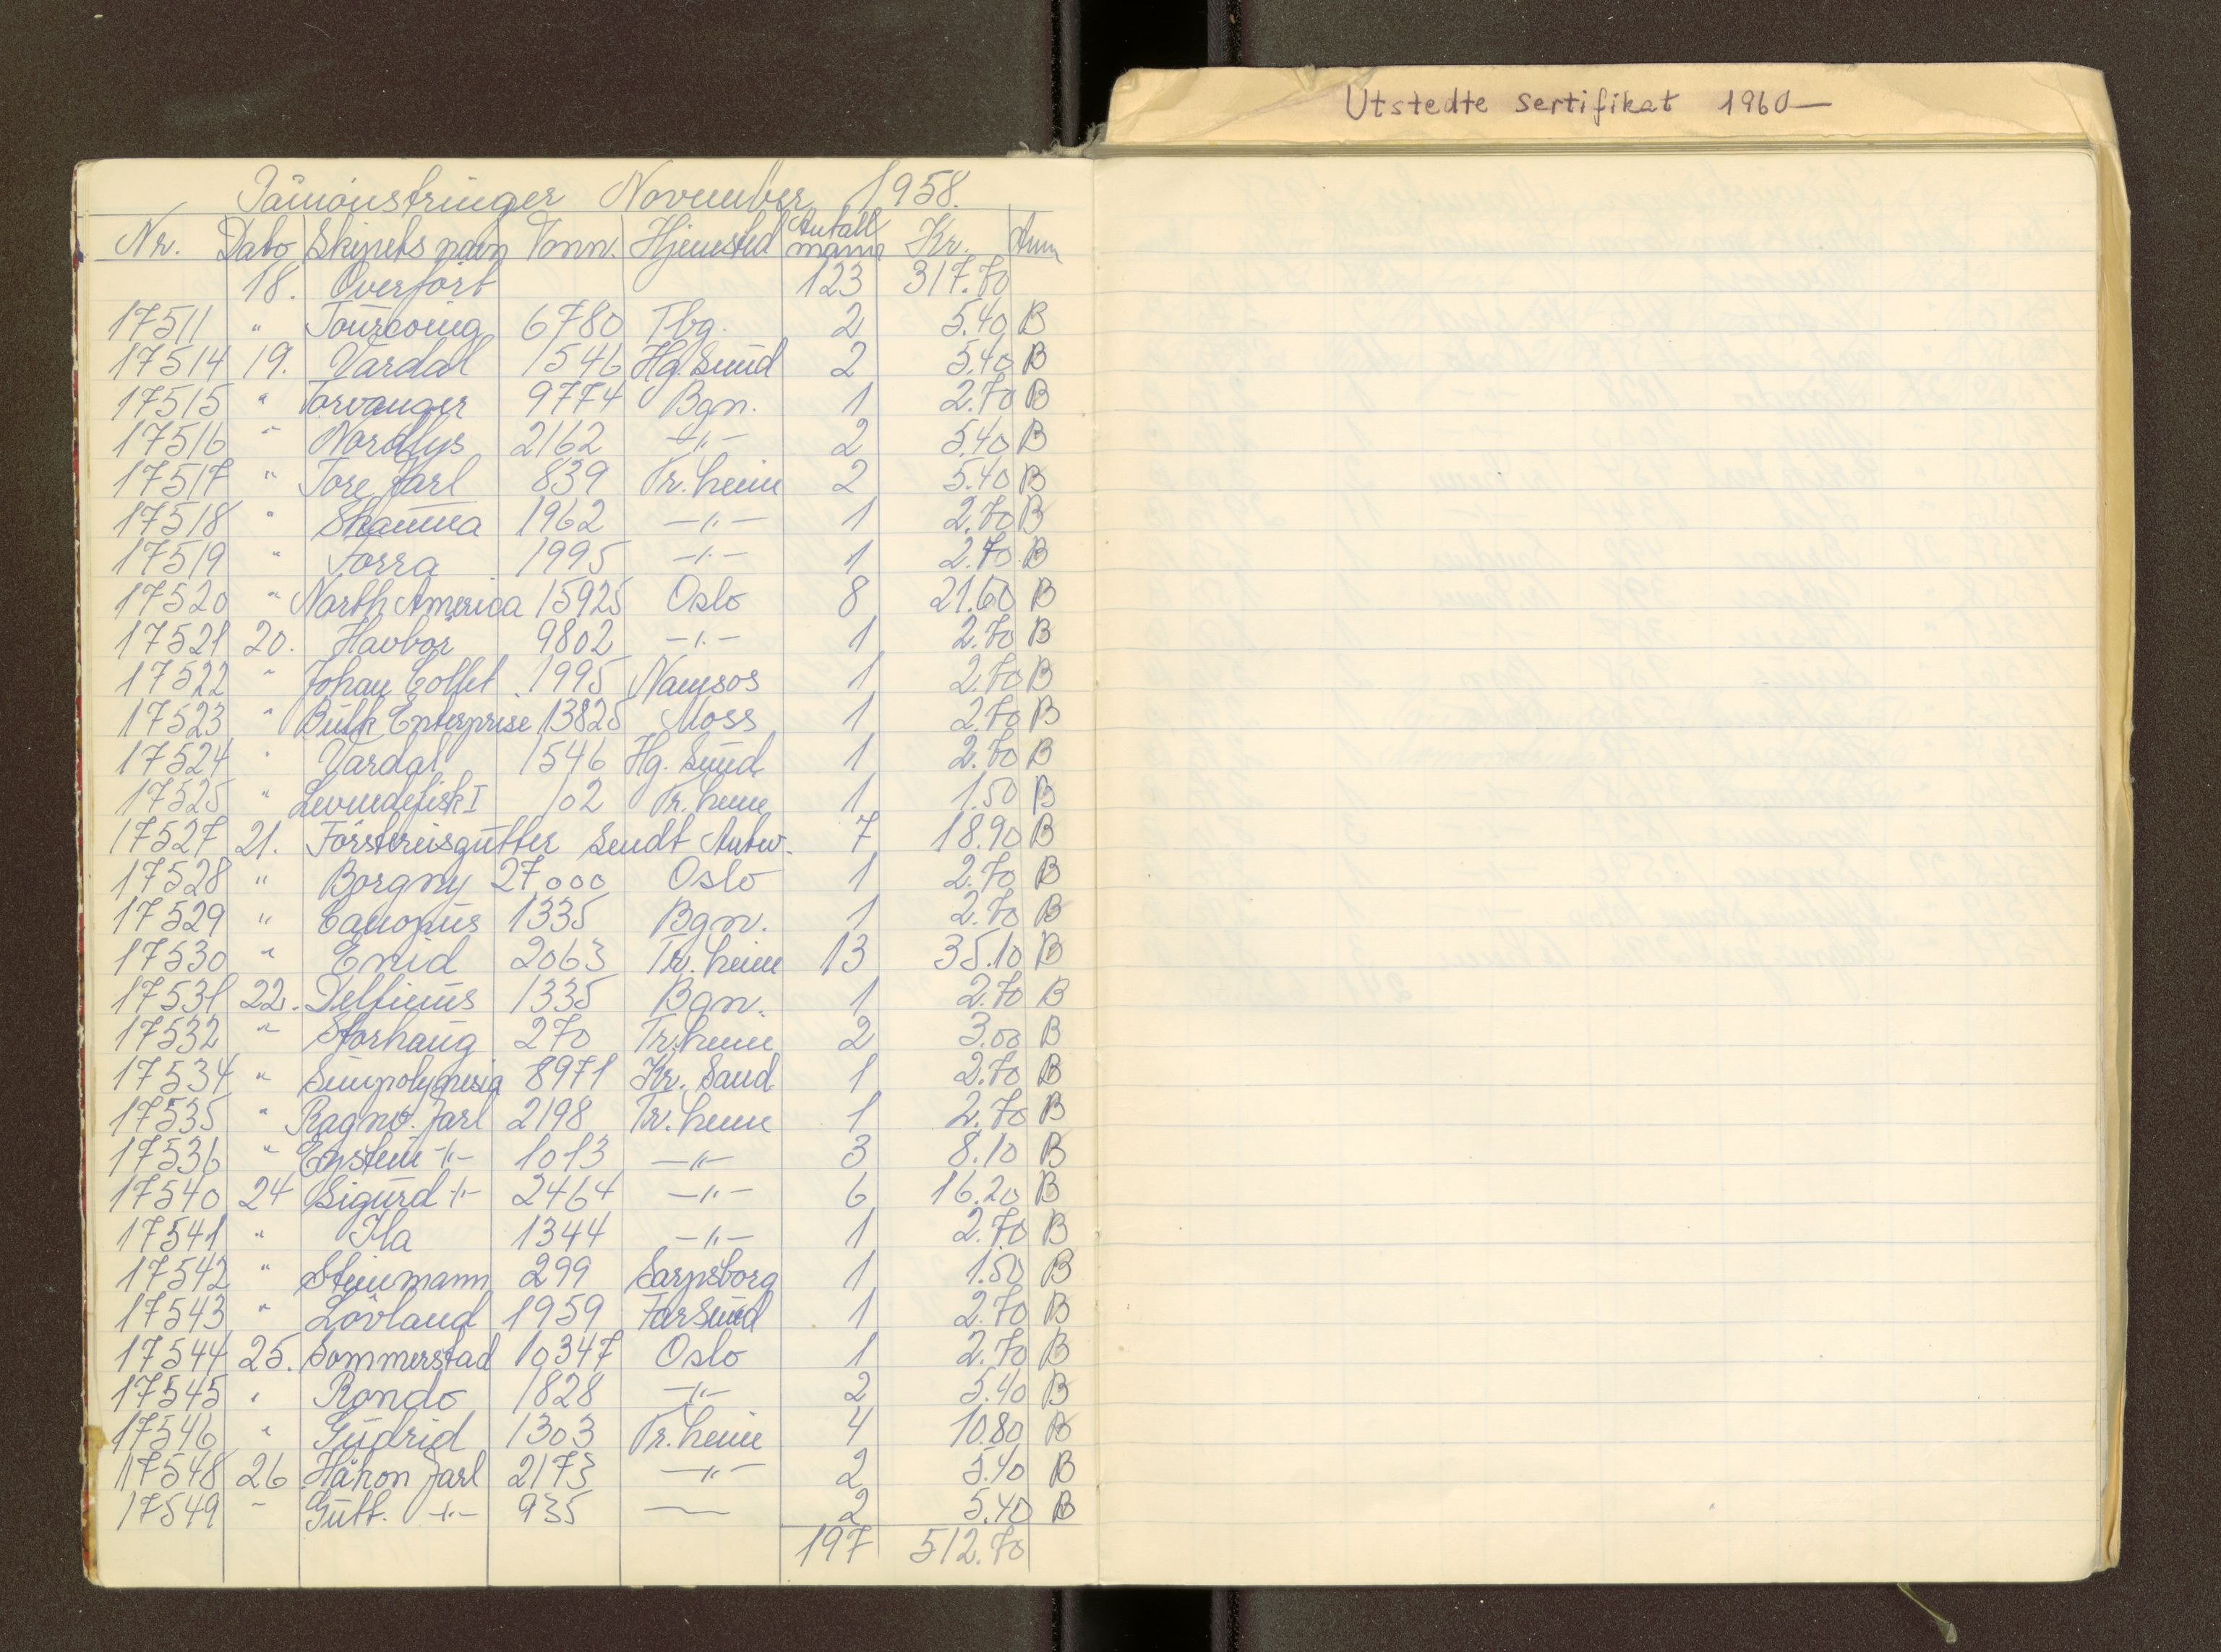 Påmönstringer November 1958.
Nr. Dato Skipets navn Tonn. Hjemsted Antall mann Kr. Anm
18. Overfört 123 317.70
17511 " Tourcoing 6780 Tbg. 2 5.40 B
17514 19. Vardal 1546 Hg.Sund 2 5.40 B
17515 " Torvanger 9774 Bgn. 1 2.70 B
17516 " Nordlys 2162 -"- 2 5.40 B
17517 " Tore Jarl 839 Tr.heim 2 5.40 B
17518 " Skauma 1962 -"- 1 2.70 B
17519 " Torra 1995 -"- 1 2.70 B
17520 " North America 15925 Oslo 8 21.60 B
17521 20. Havbör 9802 -"- 1 2.70 B
17522 " Johan Collet 1995 Namsos 1 2.70 B
17523 " Bulk Enterprise 13825 Moss 1 2.70 B
17524 " Vardal 1546 Hg. Sund 1 2.70 B
17525 " Levendefisk I 102 Tr.heim 1 1.50 B
17527 21. Förstereisgutter sendt Antw. 7 18.90 B
17528 " Borgny 27000 Oslo 1 2.70 B
17529 " Canopus 1335 Bgn. 1 2.70 B
17530 " Enid 2063 Tr.heim 13 35.10 B
17531 22. Delfinus 1335 Bgn. 1 2.70 B
17532 " Storhaug 270 Tr.heim 2 3.00 B
17534 " Sunpolynesia 8971 Kr. Sand 1 2.70 B
17535 " Ragnv. Jarl 2198 Tr.heim 1 2.70 B
17536 " Eystein -"- 1013 -"- 3 8.10 B
17540 24 Sigurd -"- 2464 -"- 6 16.20 B
17541 " Ila 1344 -"- 1 2.70 B
17542 " Steinmann 299 Sarpsborg 1 1.50 B
17543 " Lövland 1959 Farsund 1 2.70 B
17544 25. Sommerstad 10347 Oslo 1 2.70 B
17545 " Rondo 1828 -"- 2 5.40 B
17546 " Gudrid 1303 Tr.heim 4 10.80 B
17548 26 Håkon Jarl 2173 -"- 2 5.40 B
17549 " Gutt. -"- 935 — 2 5.40 B
197 512.70
Utstedte sertifikat 1960—